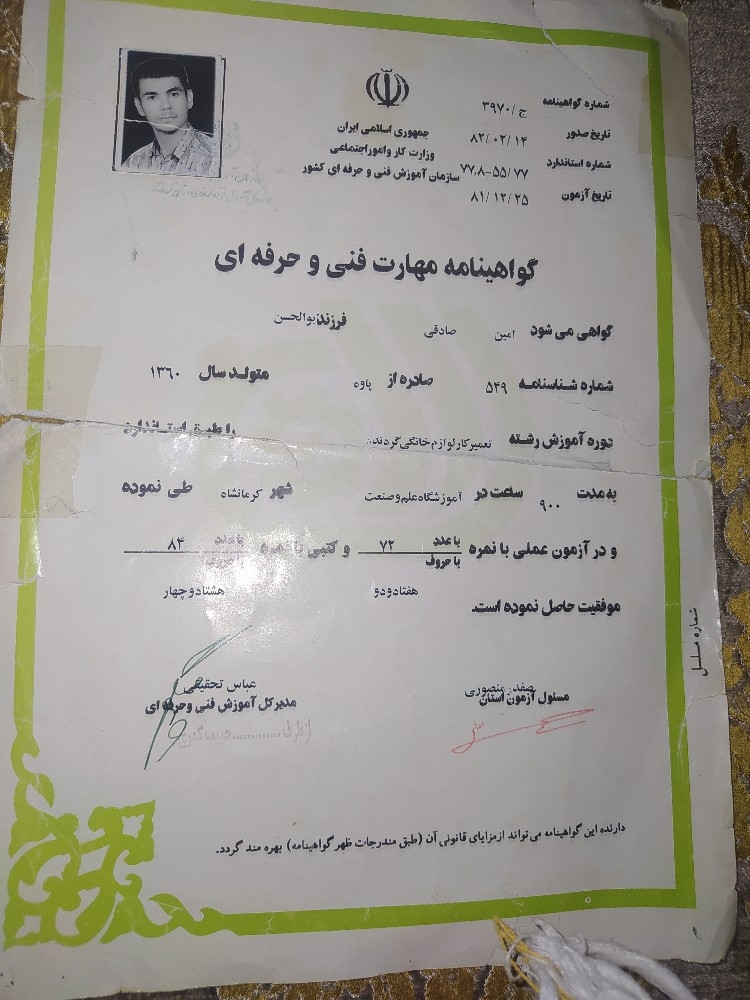 شماره گواهینامه ج / ۳۹۷۰
تاریخ صدور ۸۲/۰۲/۱۴
شماره استاندارد ۷۷.۸-۵۵/۷۷
تاریخ آزمون ۸۱/۱۲/۲۵
جمهوری اسلامی ایران
وزارت کار و امور اجتماعی
سازمان آموزش فنی و حرفه ای کشور
گواهینامه مهارت فنی و حرفه ای
گواهی می شود امین صادقی فرزند ابوالحسن
شماره شناسنامه ۵۴۹ صادره از پاوه متولد سال ۱۳۶۰
دوره آموزش رشته تعمیرکار لوازم خانگی گردنده را طبق استاندارد
به مدت ۹۰۰ ساعت در آموزشگاه علم و صنعت شهر کرمانشاه طی نموده
و در آزمون عملی با نمره با عدد ۷۲ با حروف هفتادودو و کتبی با نمره با عدد ۸۴ با حروف هشتادوچهار
موفقیت حاصل نموده است.
صفدر منصوری
مسئول آزمون استان
عباس تحقیقی
مدیر کل آموزش فنی و حرفه ای
دارنده این گواهینامه می تواند از مزایای قانونی آن (طبق مندرجات ظهر گواهینامه) بهره مند گردد.
شماره مسلسل